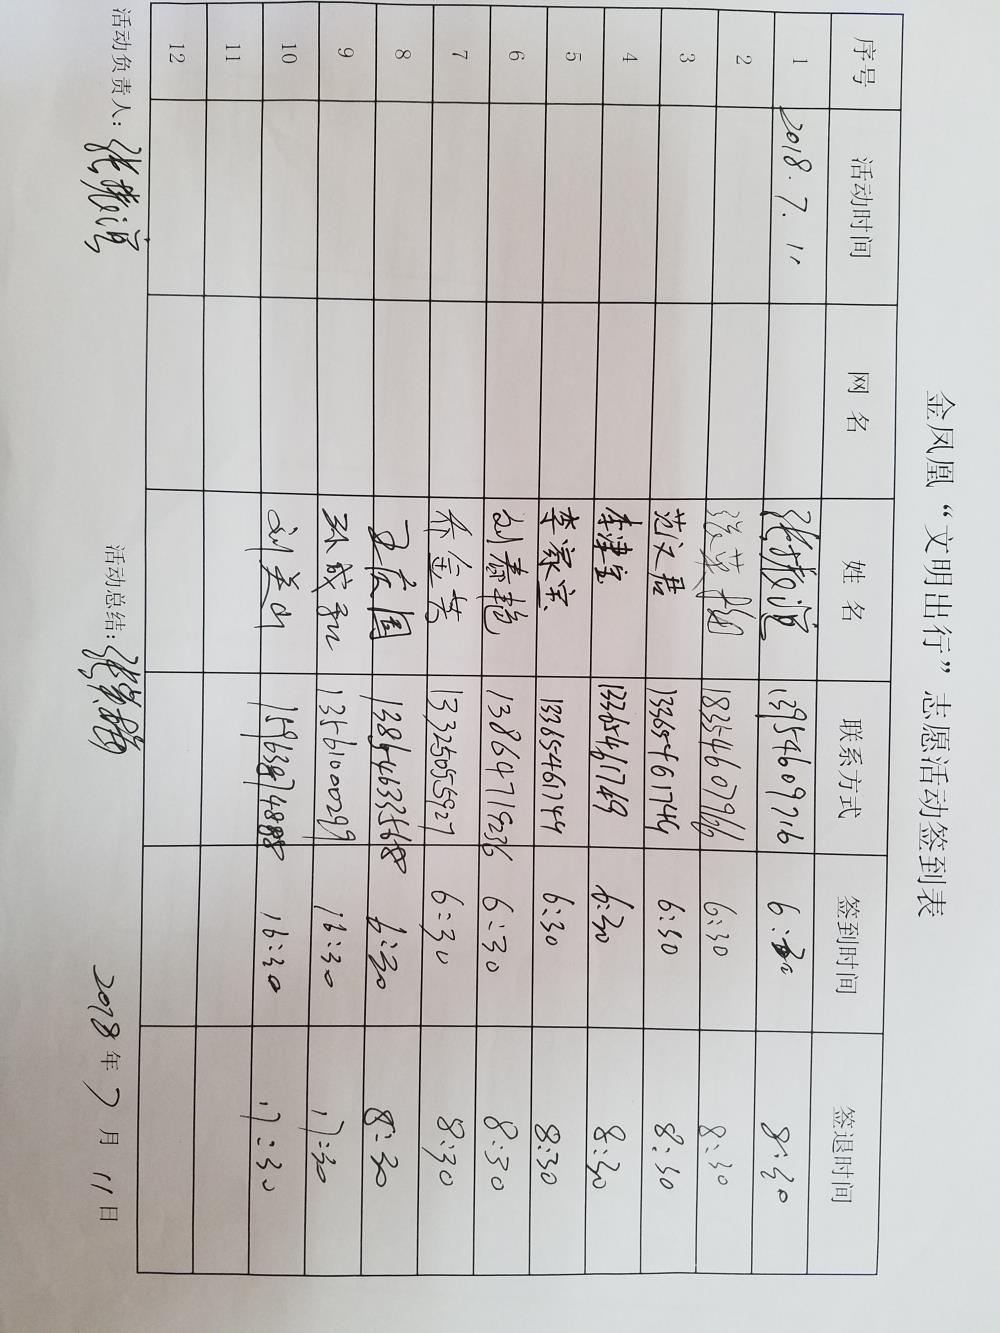 金凤凰“文明出行”志愿活动签到表
序号 活动时间 网名 姓名 联系方式 签到时间 签退时间
1 2018.7.11 13954609716 6:30 8:30
2 18354607966 6:30 8:30
3 范汉居 13365461749 6:30 8:30
4 李津宝 13365461749 6:30 8:30
5 李家宝 13365461749 6:30 8:30
6 刘春艳 13864719236 6:30 8:30
7 乔金芳 13325055927 6:30 8:30
8 6:30 8:30
9 孙成 13561000299 16:30 17:30
10 刘美 16:30 17:30
11
12
活动负责人: 活动总结: 2018年7月11日